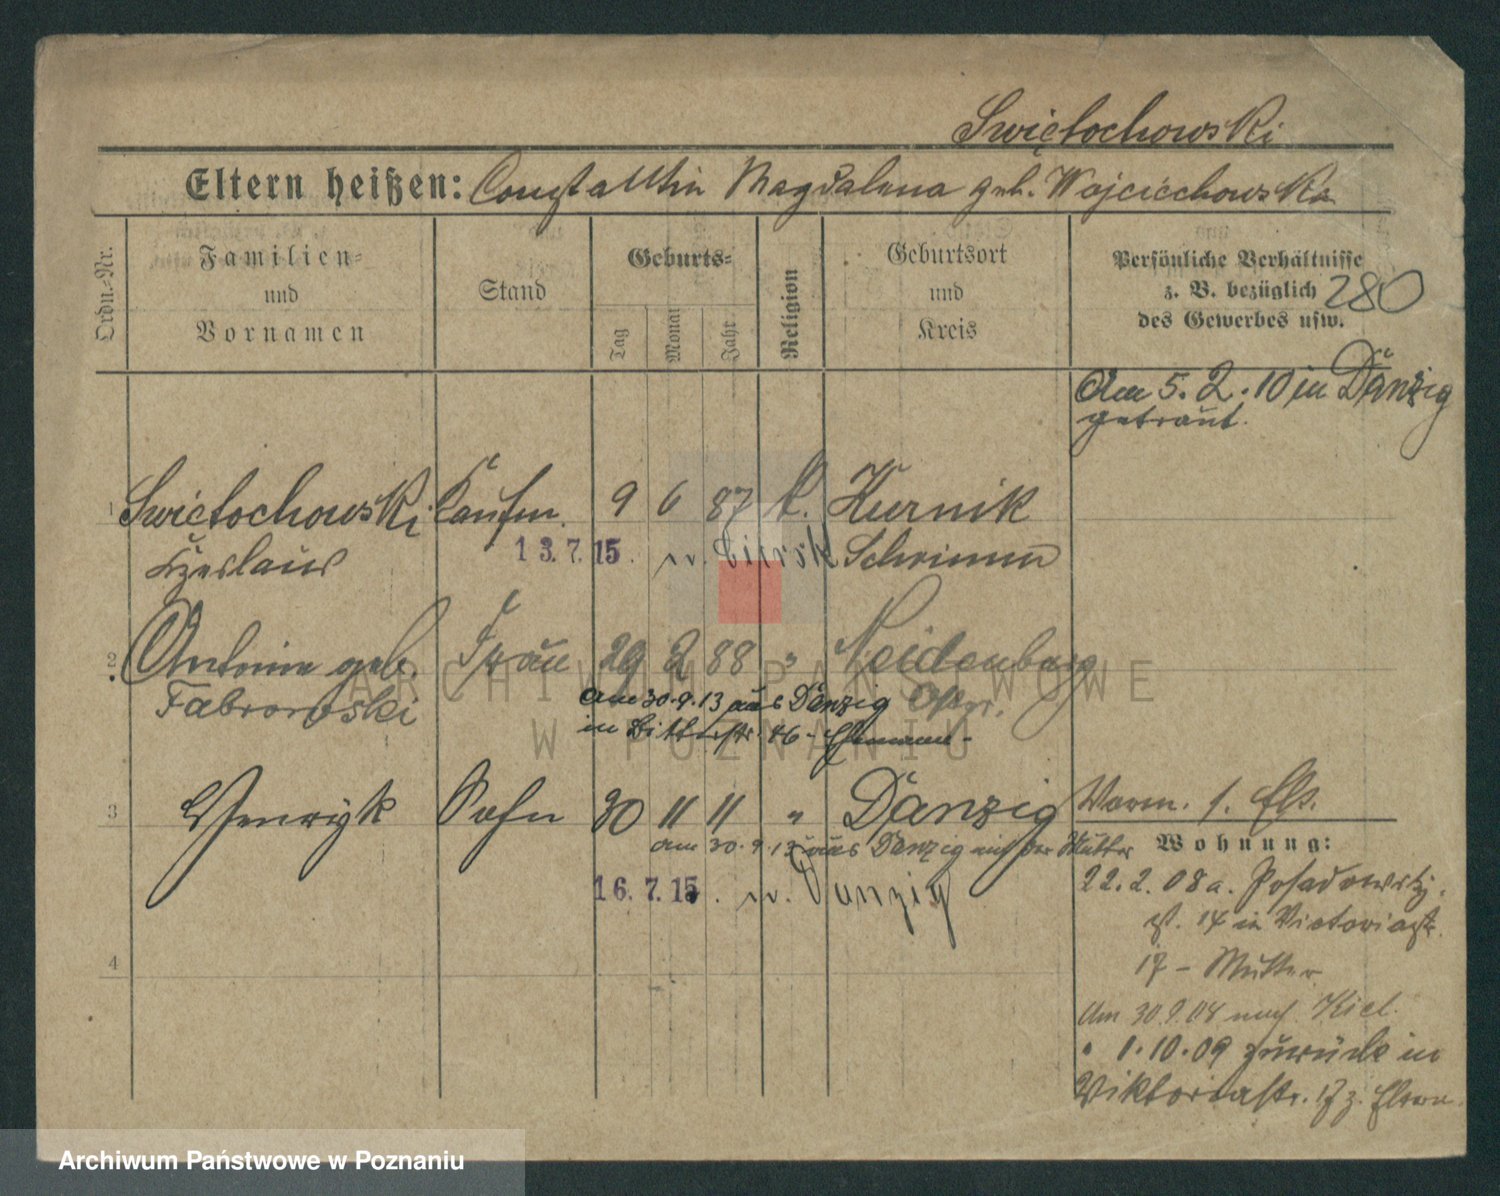 Swiętochowski
Eltern heißen: Constantin Magdalena geb. Wojciechowska
Ordn.-Nr.
Familien-
und
Vornamen
Stand
Geburts-
Tag
Monat
Jahr
Religion
Geburtsort
und
Kreis
Persönliche Verhältnisse
z. B. bezüglich
des Gewerbes usw.
280
Am 5. 2. 10 in Danzig
getraut.
1 Swietochowski Kaufm. 9 6 87 k. Kurnik
Czeslaus
13.7.15. n.
Schrimm
2 Antonie geb. Frau 29 2 88 " Neidenburg
Opr.
Am 30.9.13 aus Danzig
in 46 - Ehemann -
3 Henryk Sohn 30 11 11 " Danzig
am 30.9.13 aus Danzig mit der Mutter
16.7.15. n. Danzig
4
Vorm. 1. Els.
Wohnung:
22.2.08 a. Posadowskij
st. 14 in Victoriastr.
17 - Mutter
Am 30.9.08 nach Kiel.
" 1.10.09 zurück in
Viktoriastr. 17 z. Eltern.
ARCHIWUM PAŃSTWOWE
W POZNANIU
Archiwum Państwowe w Poznaniu